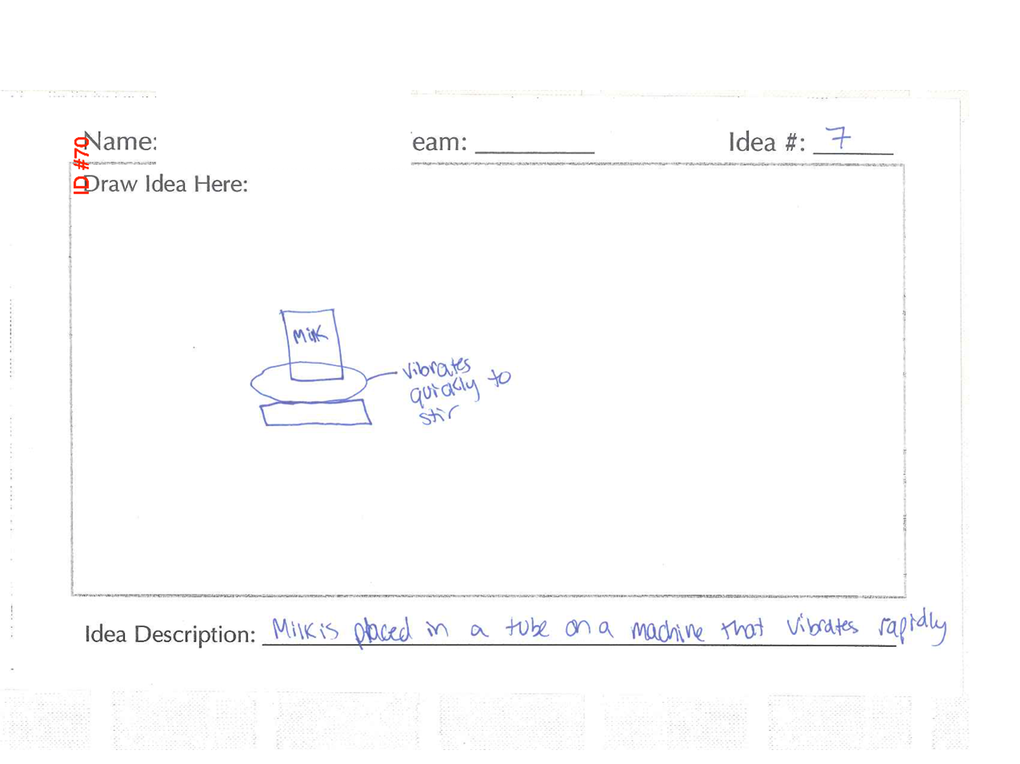 ID #70
Name: eam: Idea #: 7
Draw Idea Here:
Milk
vibrates
quickly to
stir
Idea Description: Milk is placed in a tube on a machine that vibrates rapidly